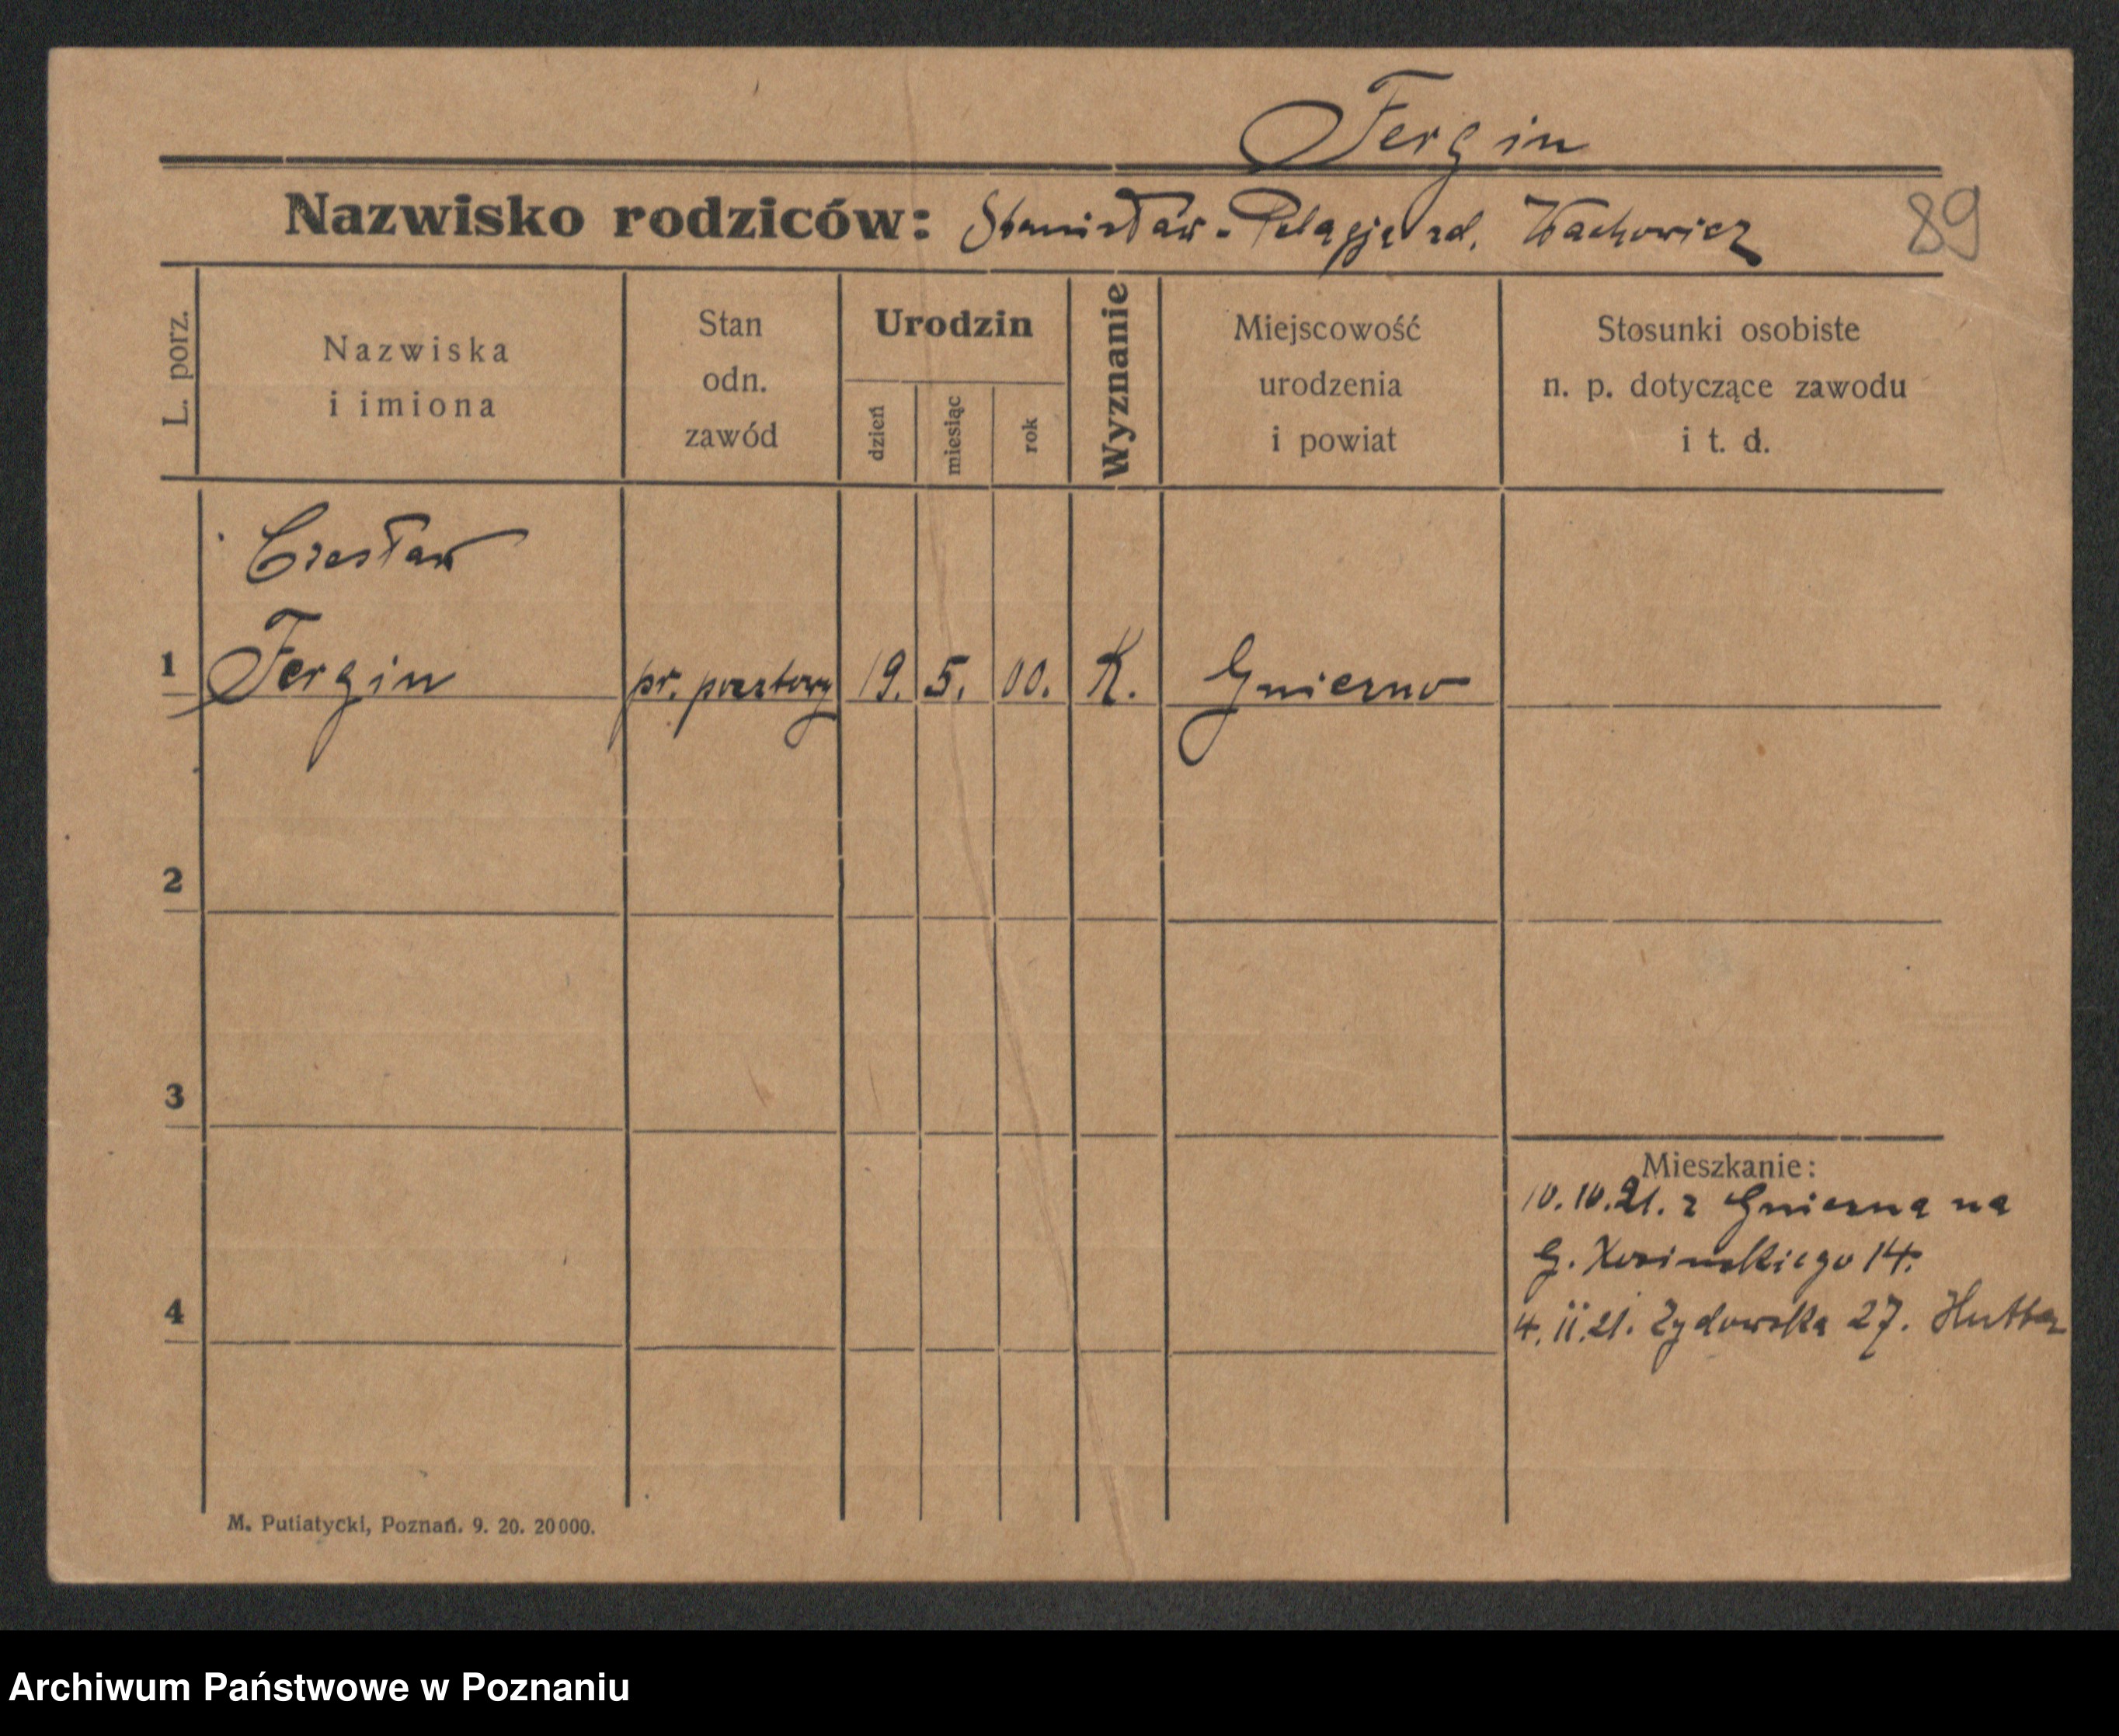 Fergin
Nazwisko rodziców: Stanisław - Pelagja zd. Wachowicz
89
L. porz.
Nazwiska
i imiona
Stan
odn.
zawód
Urodzin
dzień
miesiąc
rok
Wyznanie
Miejscowość
urodzenia
i powiat
Stosunki osobiste
n. p. dotyczące zawodu
i t. d.
Czesław
1 Fergin pr. pocztowy 19. 5. 00. K. Gniezno
2
3
Mieszkanie:
10.10.21. z Gniezna na
G. Kosinskiego 14.
4 4.11.21. Zydowska 27.
M. Putiatycki, Poznań. 9. 20. 20000.
Archiwum Państwowe w Poznaniu